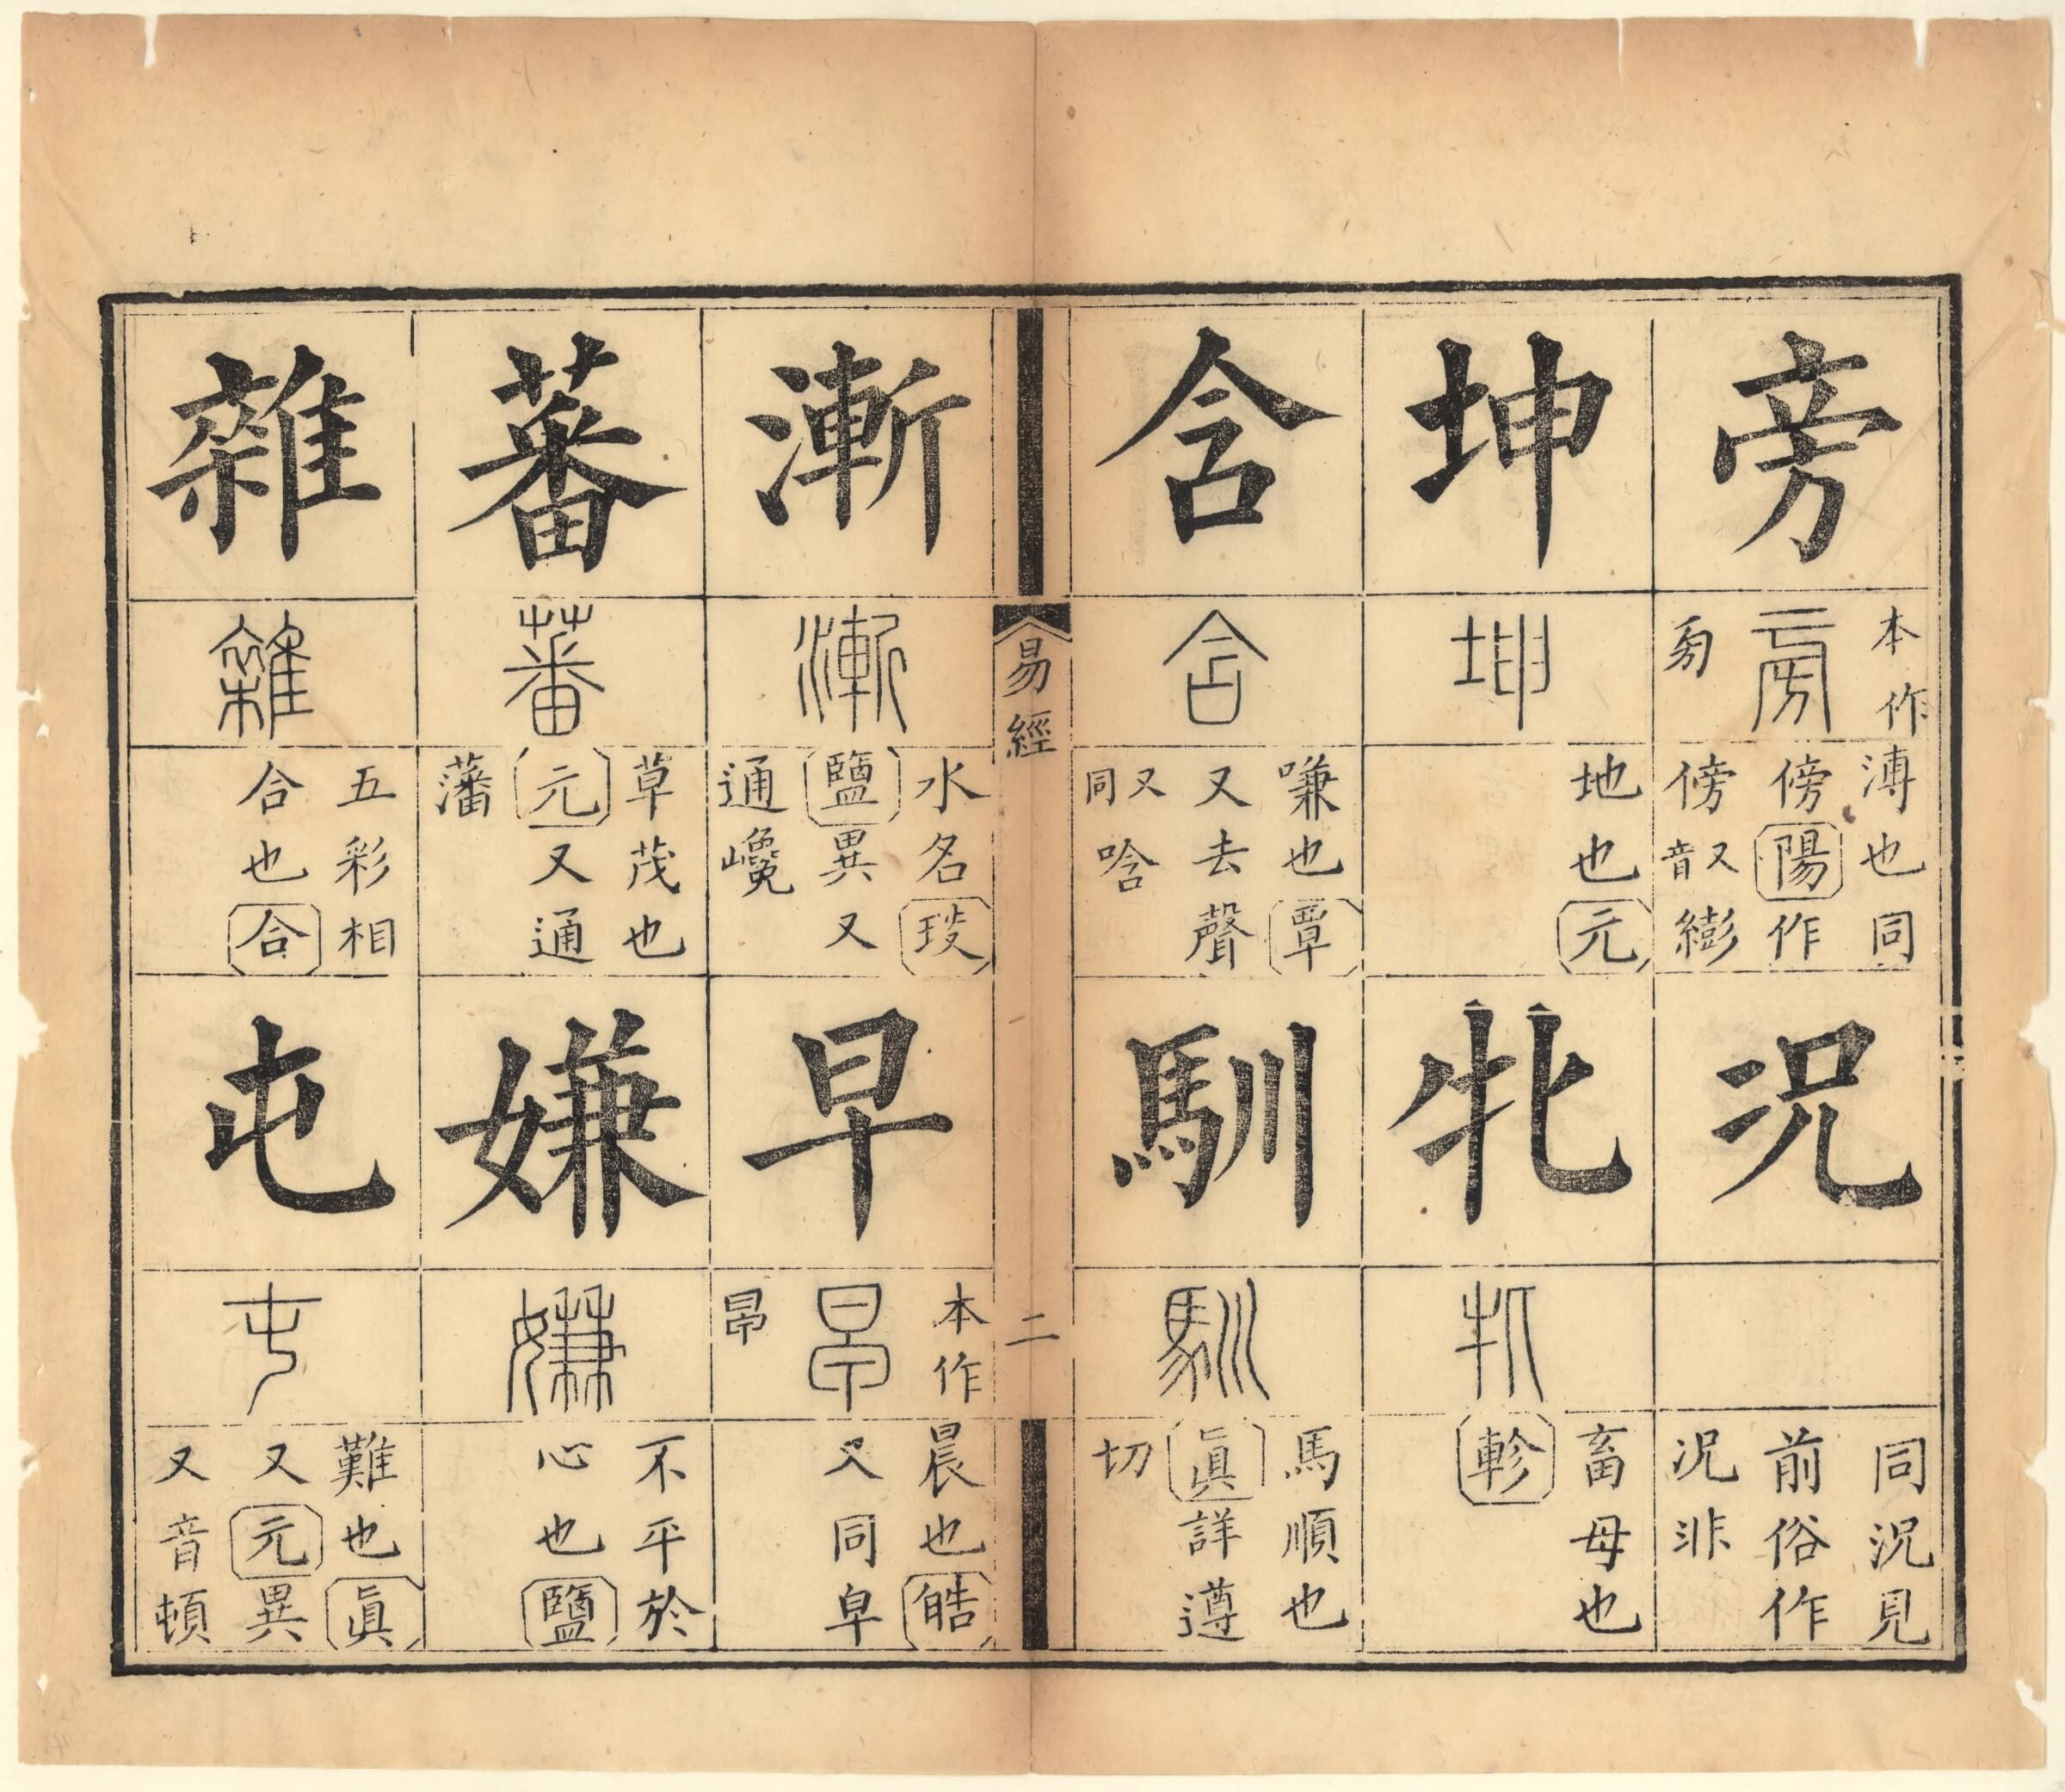 旁
本作
㫄
溥也同
傍陽作
傍又音縿
况
同況見
前俗作
况非
坤
地也元
牝
畜母也
軫
含
嗛也覃
又去聲
又同唅
馴
馬順也
眞詳遵
切
易經
二
漸
水名琰
鹽異又
通巉
早
本作
㫗
晨也皓
又同皁
蕃
草茂也
元又通
藩
嫌
不平於
心也鹽
雜
五彩相
合也合
屯
難也眞
又元異
又音頓